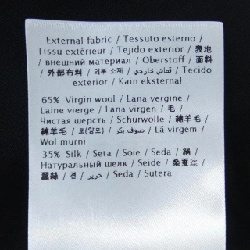 External fabric / Tessuto esterno /
Tissu extérieur / Tejido exterior / 表地
/ внешний материал / Oberstoff / 面料
/ 外部布料 / / قماش خارجي / Tecido
exterior / Kain eksternal
65% Virgin wool / Lana vergine /
Laine vierge / Lana virgen / 毛 /
Чистая шерсть / Schurwolle / 綿羊毛 /
綿羊毛 / 모(양모) / صوف بكر / Lã virgem /
Wol murni
35% Silk / Seta / Soie / Seda / 絹 /
Натуральный шелк / Seide / 桑蚕丝 /
蠶絲 / 견 / حرير / Seda / Sutera